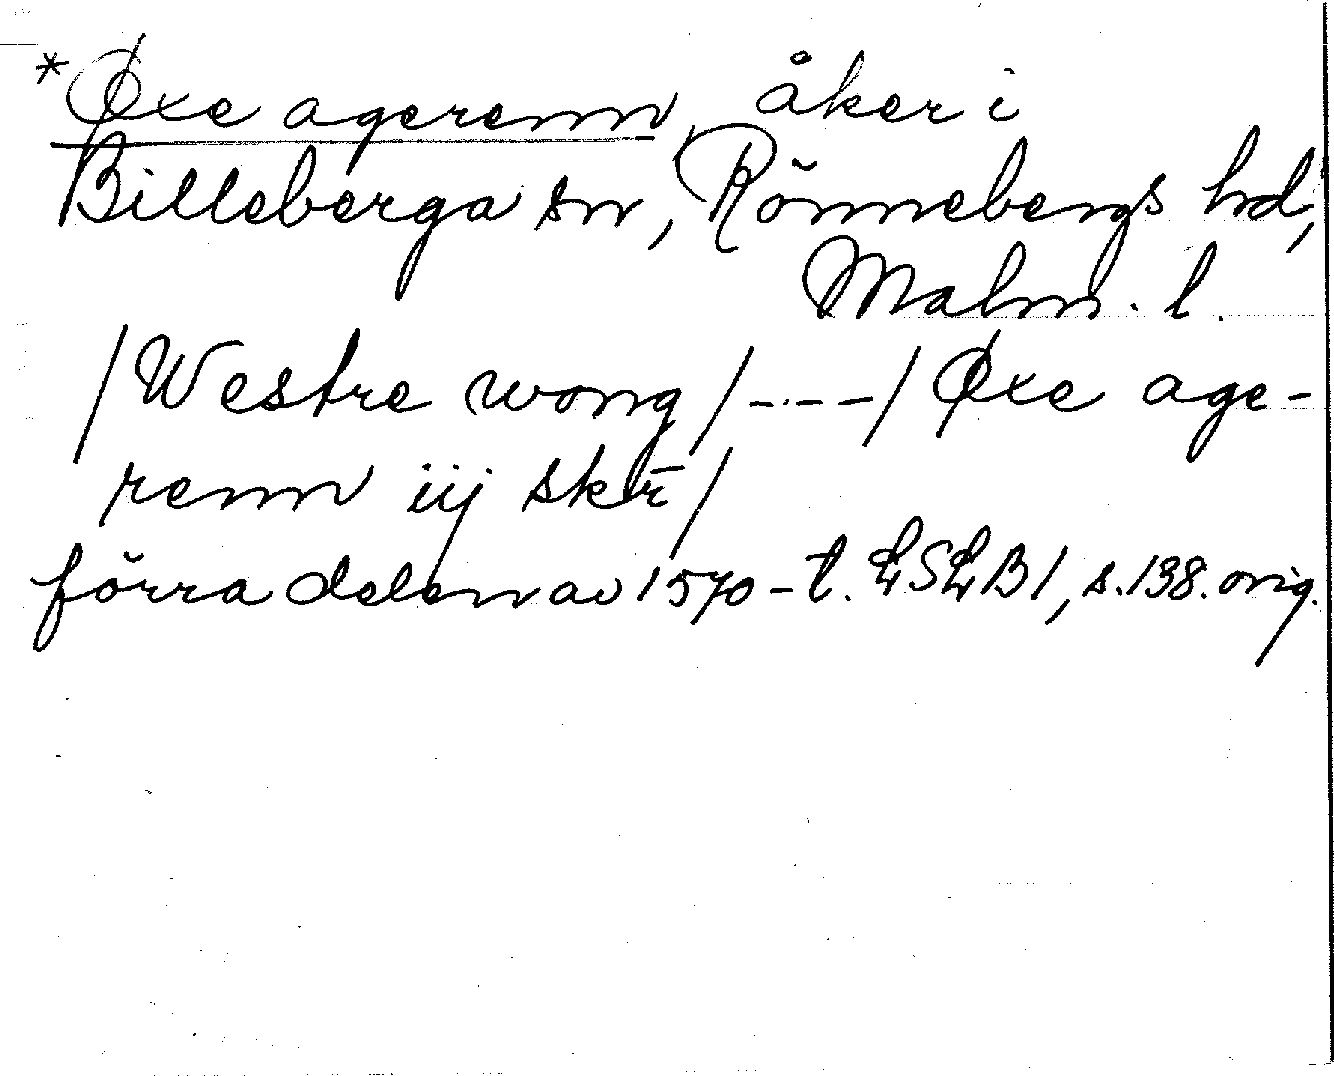 *Øxe agerenn, åker i
Billeberga sn, Rönnebergs hd,
Malm. l.
/Westre wong/----/Øxe age-
renn iij skr̄/
förra delen av 1570-t. LSLB1, s.138. orig.